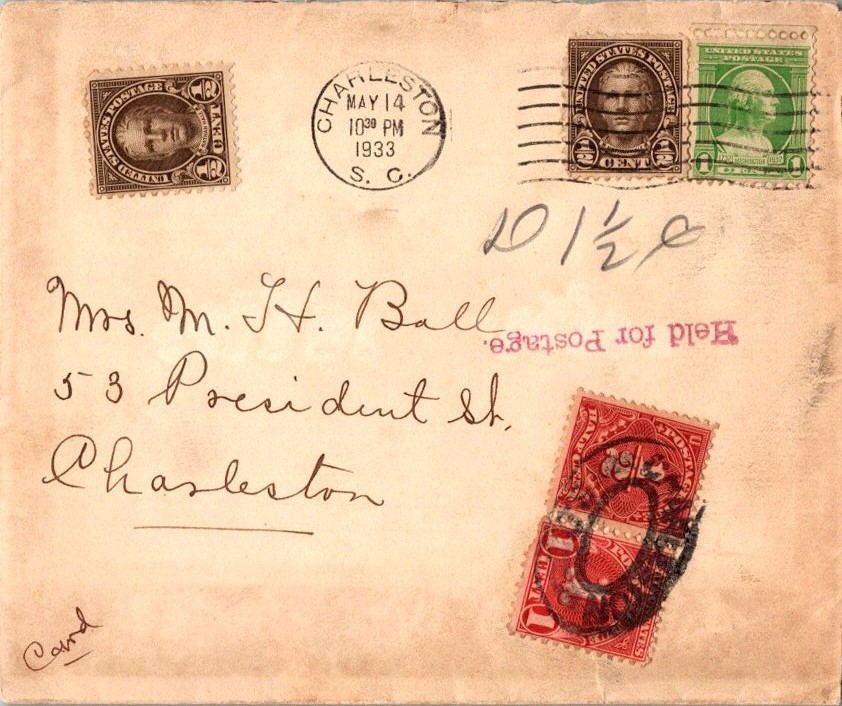 UNITED STATES POSTAGE
1/2 CENT 1/2
CHARLESTON
MAY 14
1030 PM
1933
S. C.
UNITED STATES POSTAGE
1/2 CENT 1/2
UNITED STATES
POSTAGE
1732 WASHINGTON 1932
1 CENT 1
D 1 1/2 ¢
Mrs. M. H. Ball
Held for Postage.
53 President St.
Charleston
POSTAGE
HALF
1 CENT
Card